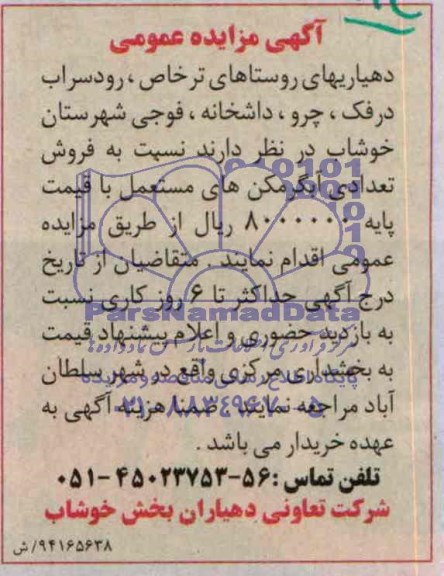 آگهی مزایده عمومی
دهیاریهای روستاهای ترخاص ، رودسراب
درفک ، چرو ، داشخانه ، فوجی شهرستان
خوشاب در نظر دارند نسبت به فروش
تعدادی آبگرمکن های مستعمل با قیمت
پایه ۸۰۰۰۰۰۰ ریال از طریق مزایده
عمومی اقدام نمایند . متقاضیان از تاریخ
درج آگهی حداکثر تا ۶ روز کاری نسبت
ParsNamadData
به بازدید حضوری و اعلام پیشنهاد قیمت
به بخشداری مرکزی واقع در شهر سلطان
آباد مراجعه نمایند . ضمنا هزینه آگهی به
عهده خریدار می باشد .
تلفن تماس :۵۶-۴۵۰۲۳۷۵۳ -۰۵۱
شرکت تعاونی دهیاران بخش خوشاب
۹۴۱۶۵۶۳۸/ش